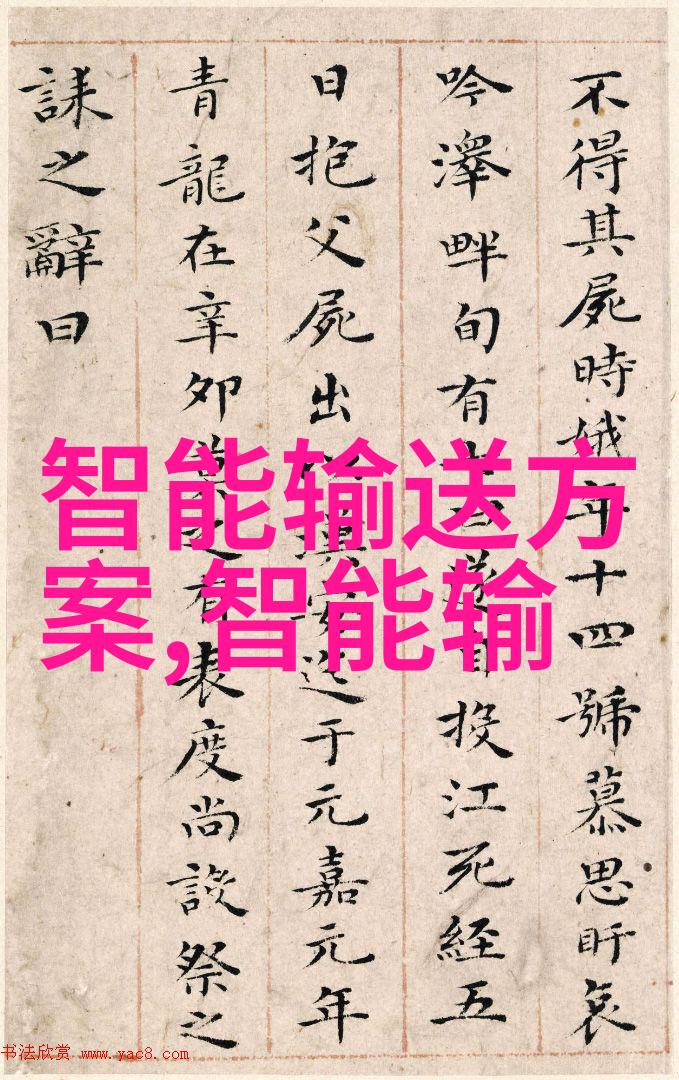 不得其屍時娥年十四號慕思盱哀
吟澤畔旬有遂自投江死經五
日抱父屍出以漢安迄于元嘉元年
青龍在辛卯莫之有表度尚設祭之
誄之辭曰
智能输送方
案,智能输
书法欣赏 www.yac8.com